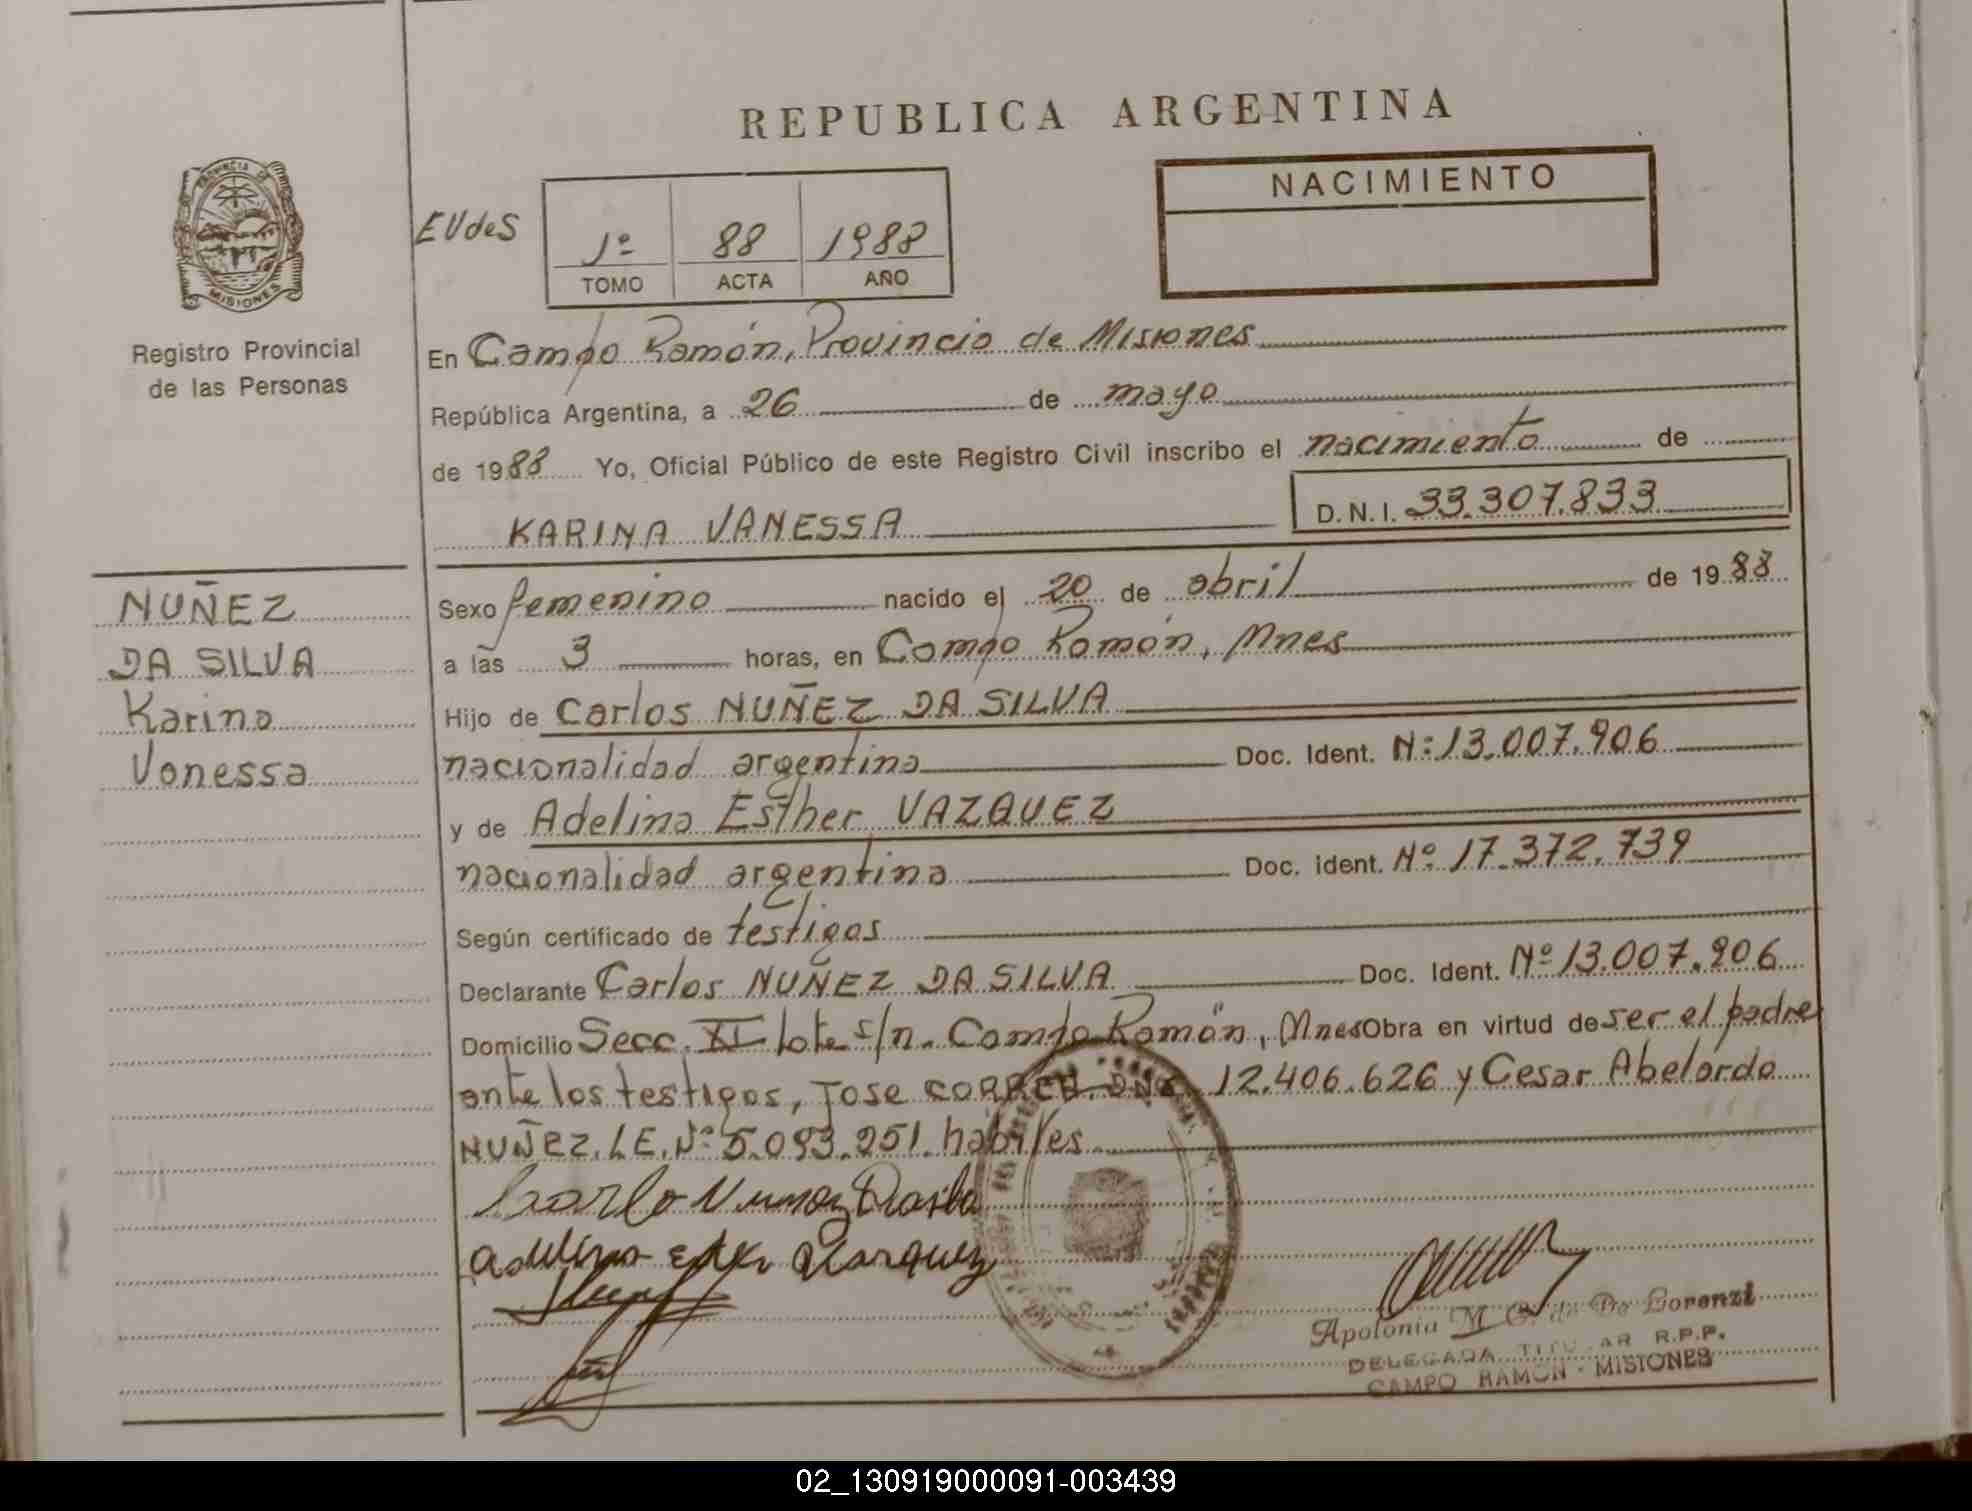 REPUBLICA ARGENTINA
PROVINCIA DE
MISIONES
Registro Provincial
de las Personas
EUdeS
1º 88 1988
TOMO ACTA AÑO
NACIMIENTO
En Campo Ramón, Provincia de Misiones
República Argentina, a 26 de mayo
de 1988 Yo, Oficial Público de este Registro Civil inscribo el nacimiento de
KARINA VANESSA D.N.I. 33.307.833
NUÑEZ
DA SILVA
Karina
Vanessa
Sexo femenino nacido el 20 de abril de 1988
a las 3 horas, en Campo Ramón, Mnes
Hijo de Carlos NUÑEZ DA SILVA
nacionalidad argentina Doc. Ident. Nº 13.007.906
y de Adelina Esther VAZQUEZ
nacionalidad argentina Doc. ident. Nº 17.372.739
Según certificado de testigos
Declarante Carlos NUÑEZ DA SILVA Doc. Ident. Nº 13.007.906
Domicilio Secc. XI lote s/n. Campo Ramón, Mnes Obra en virtud de ser el padre
ante los testigos, JOSE CORREA. DNI. 12.406.626 y Cesar Abelardo
NUÑEZ. L.E. Nº 5.093.251. habiles
Apolonia M. G. de De Lorenzi
DELEGADA TITULAR R.P.P.
CAMPO RAMON - MISIONES
02_130919000091-003439